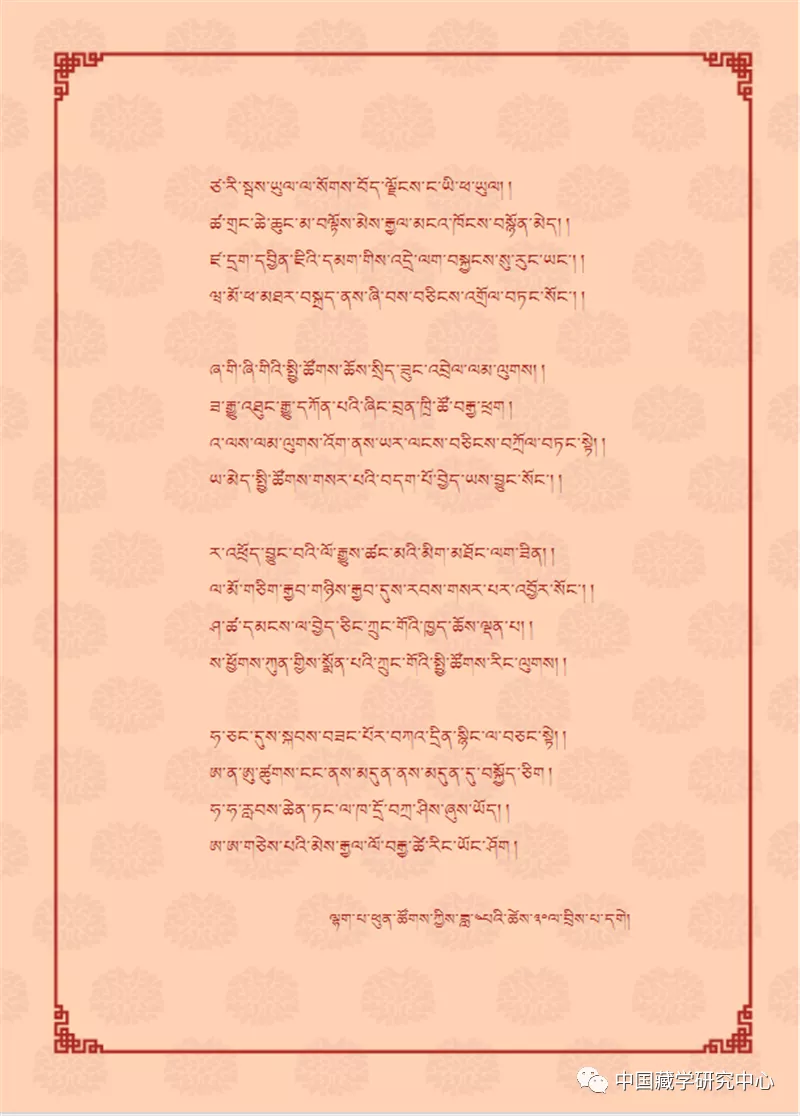 ཙ་རི་སྦས་ཡུལ་ལ་སོགས་བོད་ལྗོངས་ང་ཡི་ཕ་ཡུལ། །
ཚ་གྲང་ཆེ་ཆུང་མ་བལྟོས་མེས་རྒྱལ་མངའ་ཁོངས་བསྙོན་མེད། །
ཛ་དྲག་དབྱིན་ཇིའི་དམག་གིས་འདྲེ་ལག་བསྐྱངས་སུ་རུང་ཡང་། །
ཝ་མོ་ཕ་མཐར་བསྐྲད་ནས་ཞི་བས་བཅིངས་འགྲོལ་བཏང་སོང་། །
ཞ་གི་ཞི་གིའི་སྤྱི་ཚོགས་ཆོས་སྲིད་ཟུང་འབྲེལ་ལམ་ལུགས། །
ཟ་རྒྱུ་འཐུང་རྒྱུ་དཀོན་པའི་ཞིང་བྲན་ཁྲི་ཚོ་བརྒྱ་ཕྲག །
འ་ལས་ལམ་ལུགས་འོག་ནས་ཡར་ལངས་བཅིངས་བཀྲོལ་བཏང་སྟེ། །
ཡ་མེད་སྤྱི་ཚོགས་གསར་པའི་བདག་པོ་བྱེད་ཡས་བྱུང་སོང་། །
ར་འཕྲོད་བྱུང་བའི་ལོ་རྒྱུས་ཚང་མའི་མིག་མཐོང་ལག་ཟིན། །
ལ་མོ་གཅིག་རྒྱབ་གཉིས་རྒྱབ་དུས་རབས་གསར་པར་འབྱོར་སོང་། །
ཤ་ཚ་དམངས་ལ་བྱེད་ཅིང་ཀྲུང་གོའི་ཁྱད་ཆོས་ལྡན་པ། །
ས་ཕྱོགས་ཀུན་གྱིས་སྨོན་པའི་ཀྲུང་གོའི་སྤྱི་ཚོགས་རིང་ལུགས། །
ཧ་ཅང་དུས་སྐབས་བཟང་པོར་བཀའ་དྲིན་སྙིང་ལ་བཅང་སྟེ། །
ཨ་ན་ཨུ་ཚུགས་ངང་ནས་མདུན་ནས་མདུན་དུ་བསྐྱོད་ཅིག །
ཧ་ཧ་རླབས་ཆེན་ཏང་ལ་ཁ་དྲོ་བཀྲ་ཤིས་ཞུས་ཡོད། །
ཨ་ཨ་གཅེས་པའི་མེས་རྒྱལ་ལོ་བརྒྱ་ཚེ་རིང་ཡོང་ཤོག །
ལྷག་པ་ཕུན་ཚོགས་ཀྱིས་ཟླ་༤པའི་ཚེས་༢༠ལ་བྲིས་པ་དགེ།
中国藏学研究中心